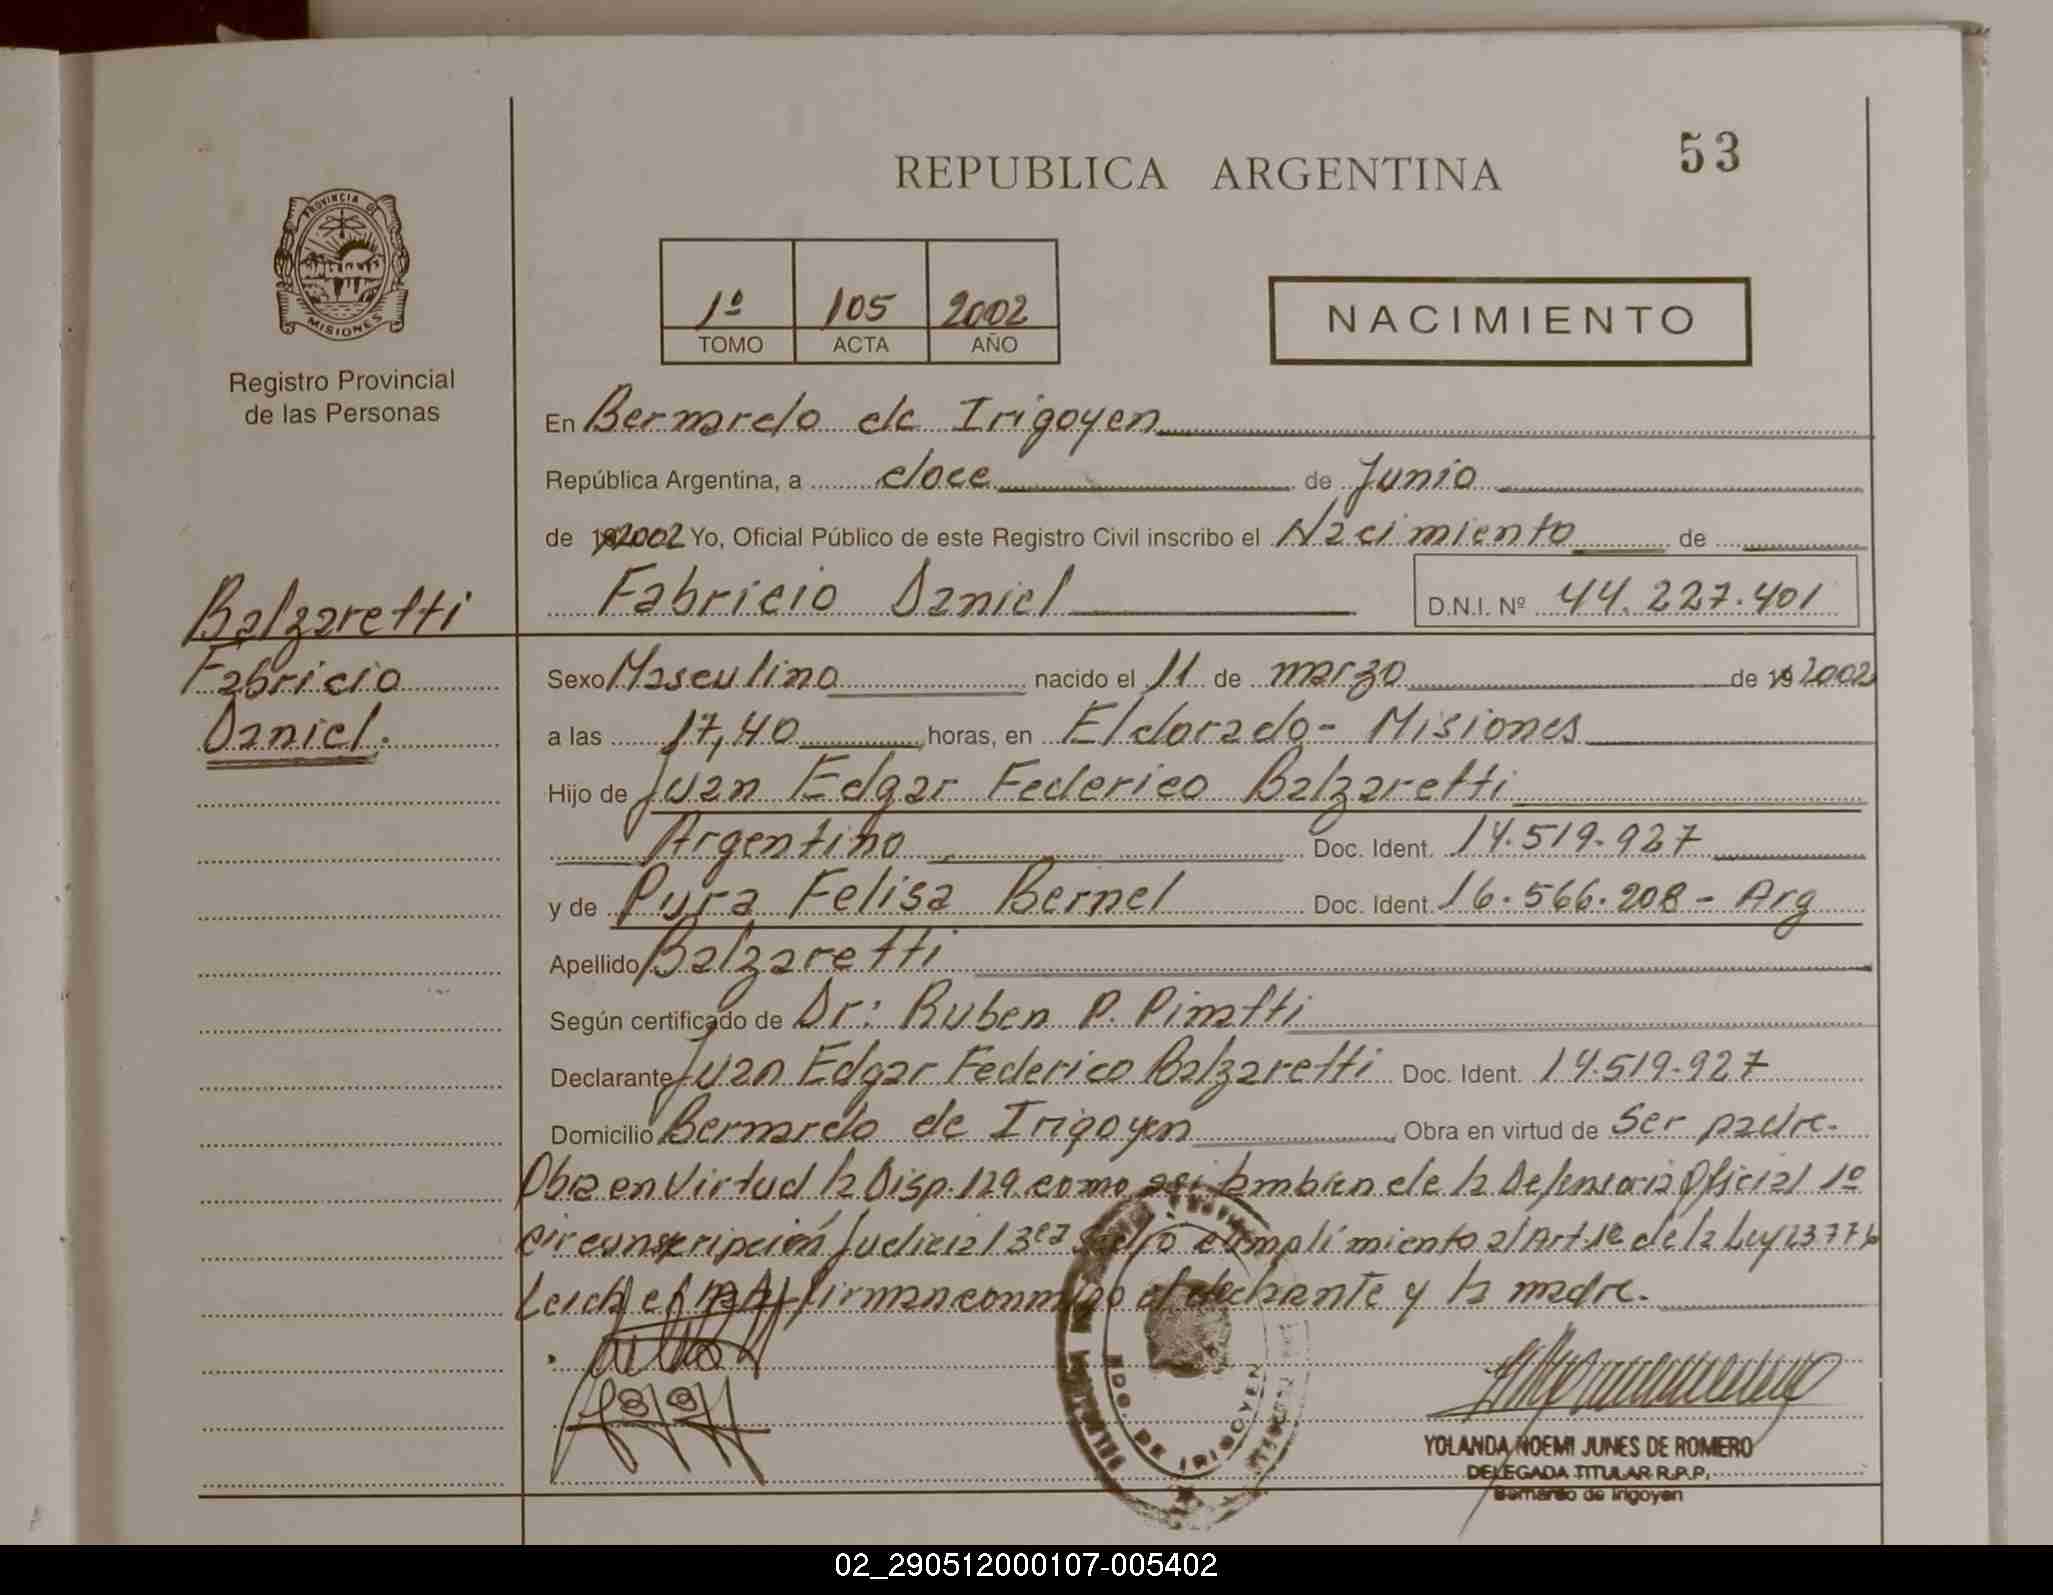 53
REPUBLICA ARGENTINA
PROVINCIA DE
MISIONES
1º 105 2002
TOMO ACTA AÑO
NACIMIENTO
Registro Provincial
de las Personas
En Bernardo de Irigoyen
República Argentina, a doce de Junio
de 2002 Yo, Oficial Público de este Registro Civil inscribo el Nacimiento de
Fabricio Daniel D.N.I. Nº 44.227.401
Balzaretti
Fabricio
Daniel.
Sexo Masculino nacido el 11 de marzo de 19 2002
a las 17,40 horas, en Eldorado - Misiones
Hijo de Juan Edgar Federico Balzaretti
Argentino Doc. Ident. 14.519.927
y de Pura Felisa Bernel Doc. Ident. 16.566.208 - Arg
Apellido Balzaretti
Según certificado de Dr: Ruben P.
Declarante Juan Edgar Federico Balzaretti Doc. Ident. 14.519.927
Domicilio Bernardo de Irigoyen Obra en virtud de Ser padre.
Obra en Virtud la Disp. 129 como asi tambien de la Defensoria Oficial 1º
circunscripción Judicial 3era cumplimiento al Art. 1º de la Ley 23776
firman conmigo el declarante y la madre.
BDO. DE IRIGOYEN
YOLANDA NOEMI JUNES DE ROMERO
DELEGADA TITULAR R.P.P.
Bernardo de Irigoyen
02_290512000107-005402